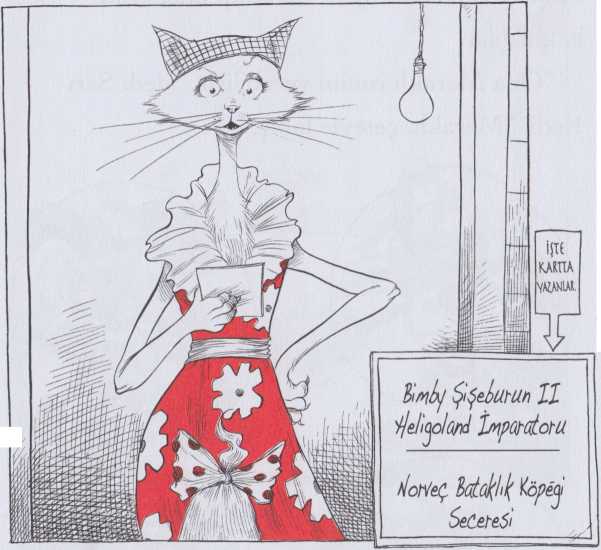 İŞTE
KARTTA
YAZANLAR.
Bimby Şişeburun II
Heligoland İmparatoru
Norveç Bataklık Köpeği
Seceresi